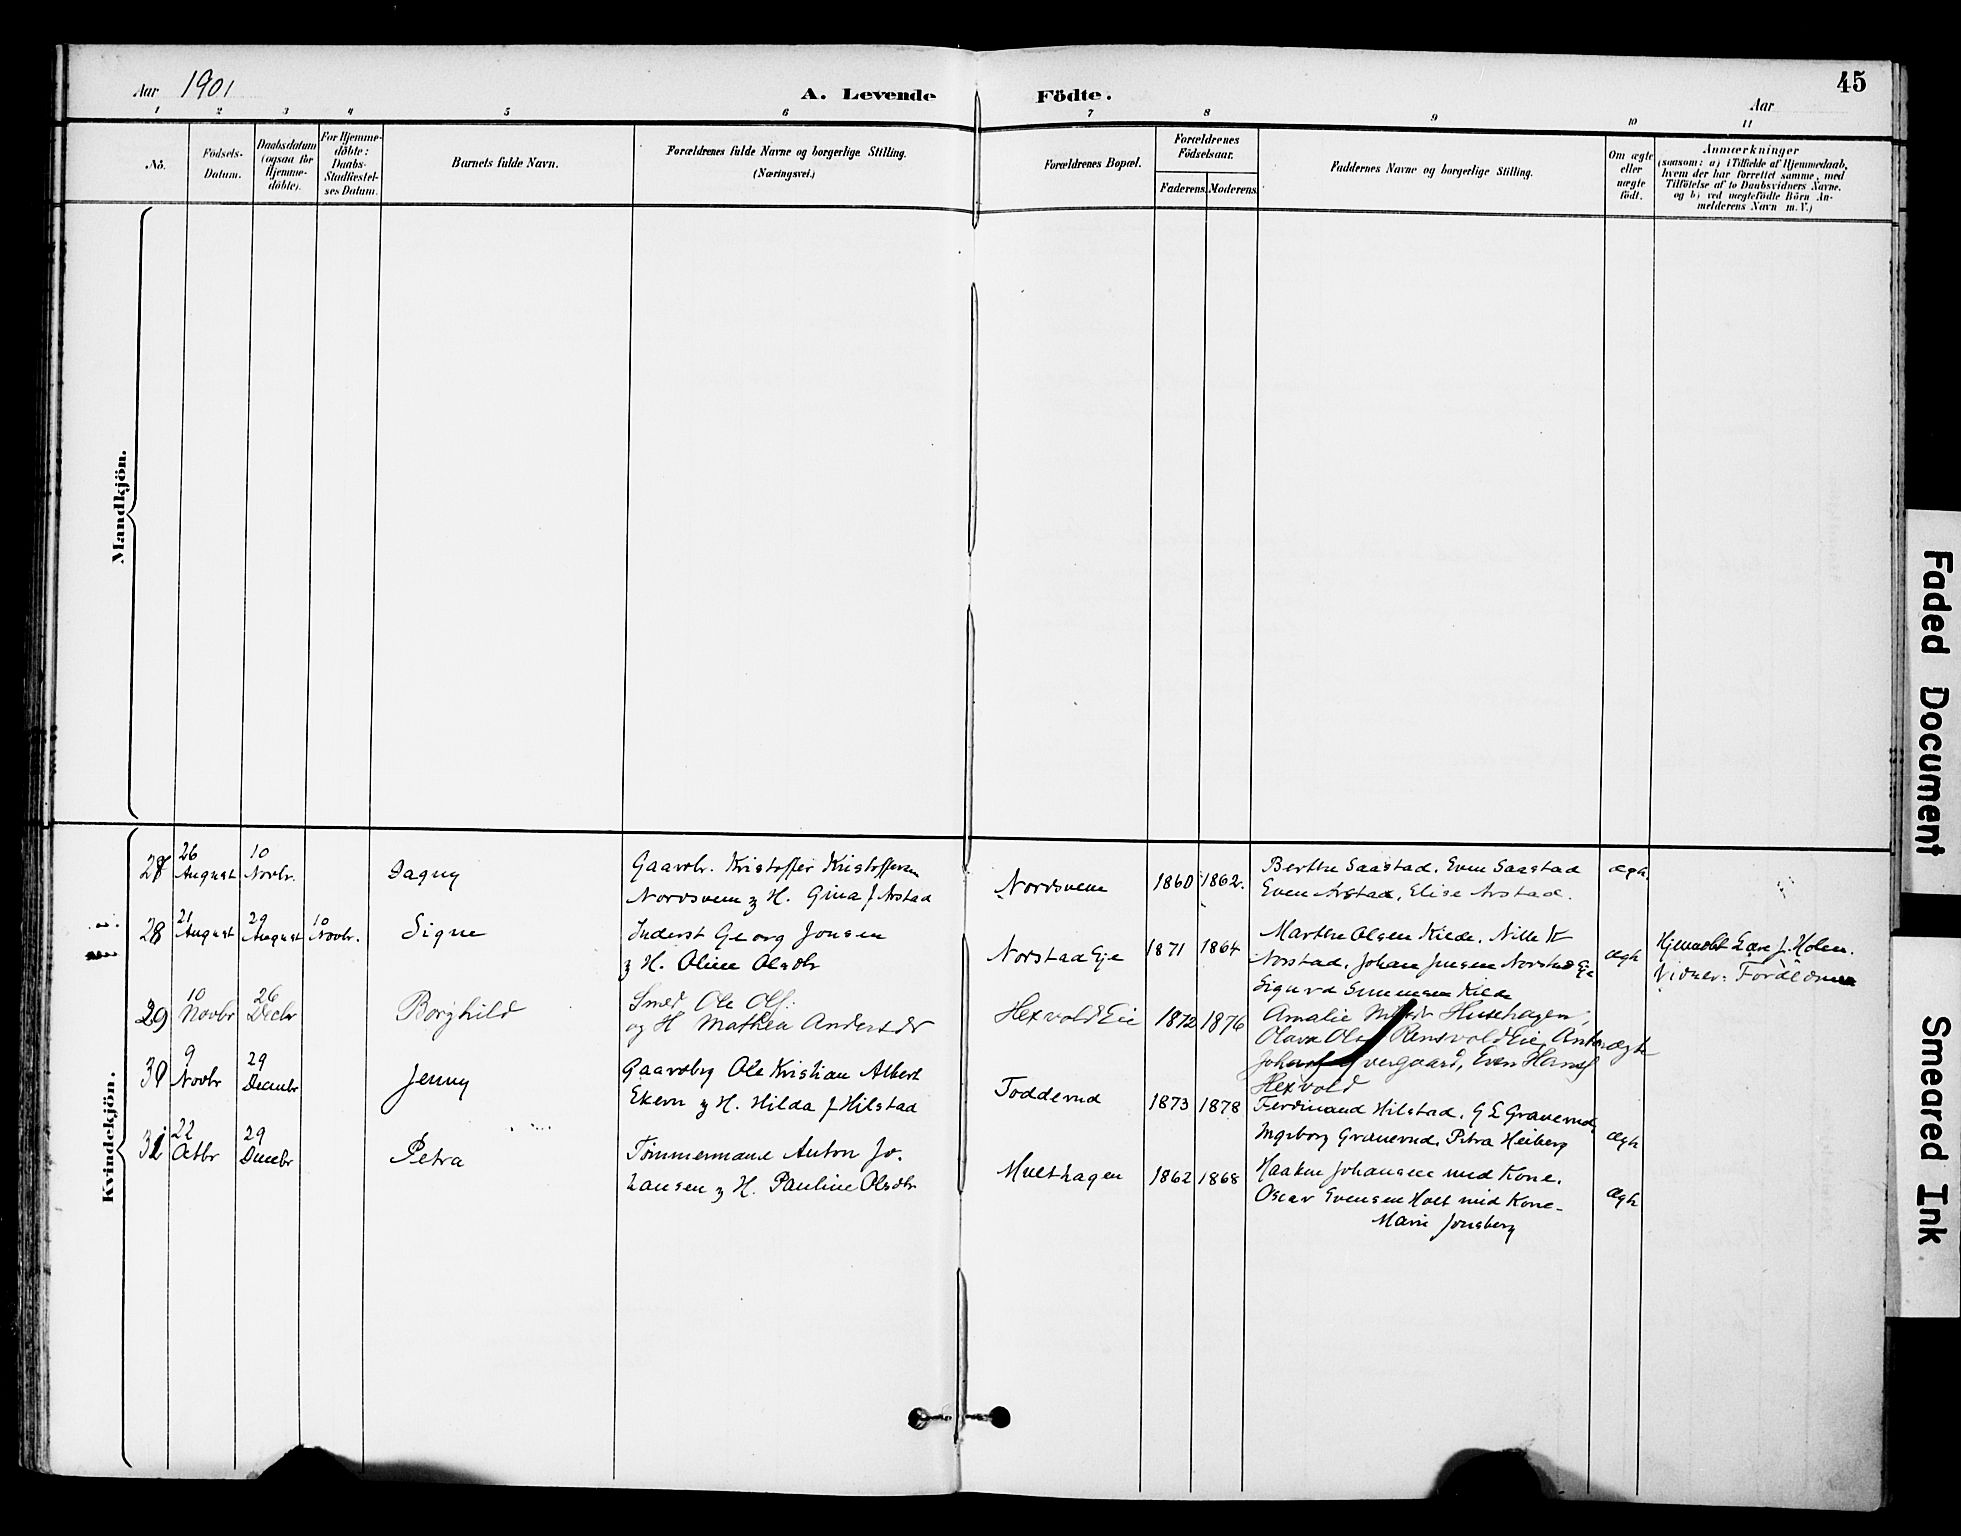 Aar 1901
A. Levende Födte.
45
Aar
1 2 3 4 5 6 7 8 9 10 11
No.
Födsels-
Datum.
Daabsdatum
(ogsaa for
Hjemme-
döbte).
For Hjemme-
döbte:
Daabs-
Stadfæstel-
ses Datum.
Barnets fulde Navn.
Forældrenes fulde Navne og borgerlige Stilling.
(Næringsvei.)
Forældrenes Bopæl.
Forældrenes
Födselsaar.
Faderens. Moderens.
Faddernes Navne og borgerlige Stilling.
Om ægte
eller
uægte
födt.
Anmærkninger
(saasom: a) i Tilfælde af Hjemmedaab,
hvem der har forrettet samme, med
Tilföielse af to Daabsvidners Navne,
og b) ved uægtefödte Börn An-
melderens Navn m. V.)
Mandkjön.
Kvindekjön.
27
26
August
10
Novbr.
Dagny
Gaardbr. Kristoffer Kristoffersen
Nordsveen & H. Gina f. Arstad
Nordsveen
1860 1862.
Berthe Saastad. Even Saastad
Even Arstad, Elise Arstad.
ægh.
28
21
August
29
August
10
Novbr.
Signe
Inderst Georg Jonsen
& H. Oline Olsdtr
Norstad Eje
1871 1864
Marthe Olsen Kilde. Nille K
Norstad. Johan Jensen Norstad Eje
Sigurd Simensen Kilde
ægh
Hjemdbt Lære J. Holen.
Vidner: Forældrene
29
10
Novbr
26
Decbr
Borghild
Smed Ole Ols.
og H Mathea Andersdr
Hexvold Eie
1872 1876
Amalie Husehagen,
Olava Ols Rensvold Eie, Anton
Johans vergaard, Even Hans
Hexvold
ægh
30
9
Novbr
29
Decmbr
Jenny
Gaardbrg Ole Kristian Albert
Ekern & H. Hilda f Hilstad
Todderud
1873 1878
Ferdinand Hilstad. G E Graverud.
Ingeborg Graverud. Petra Heiberg
ægh
31
22
Octbr
29
Decebr
Petra
Tömmermand Anton Jo-
hansen & H. Pauline Olsdtr
Multhagen
1862 1868
Haaken Johansen med Kone.
Oscar Evensen Holt med Kone-
Marie Jonsberg
ægh
Faded Document
Smeared Ink